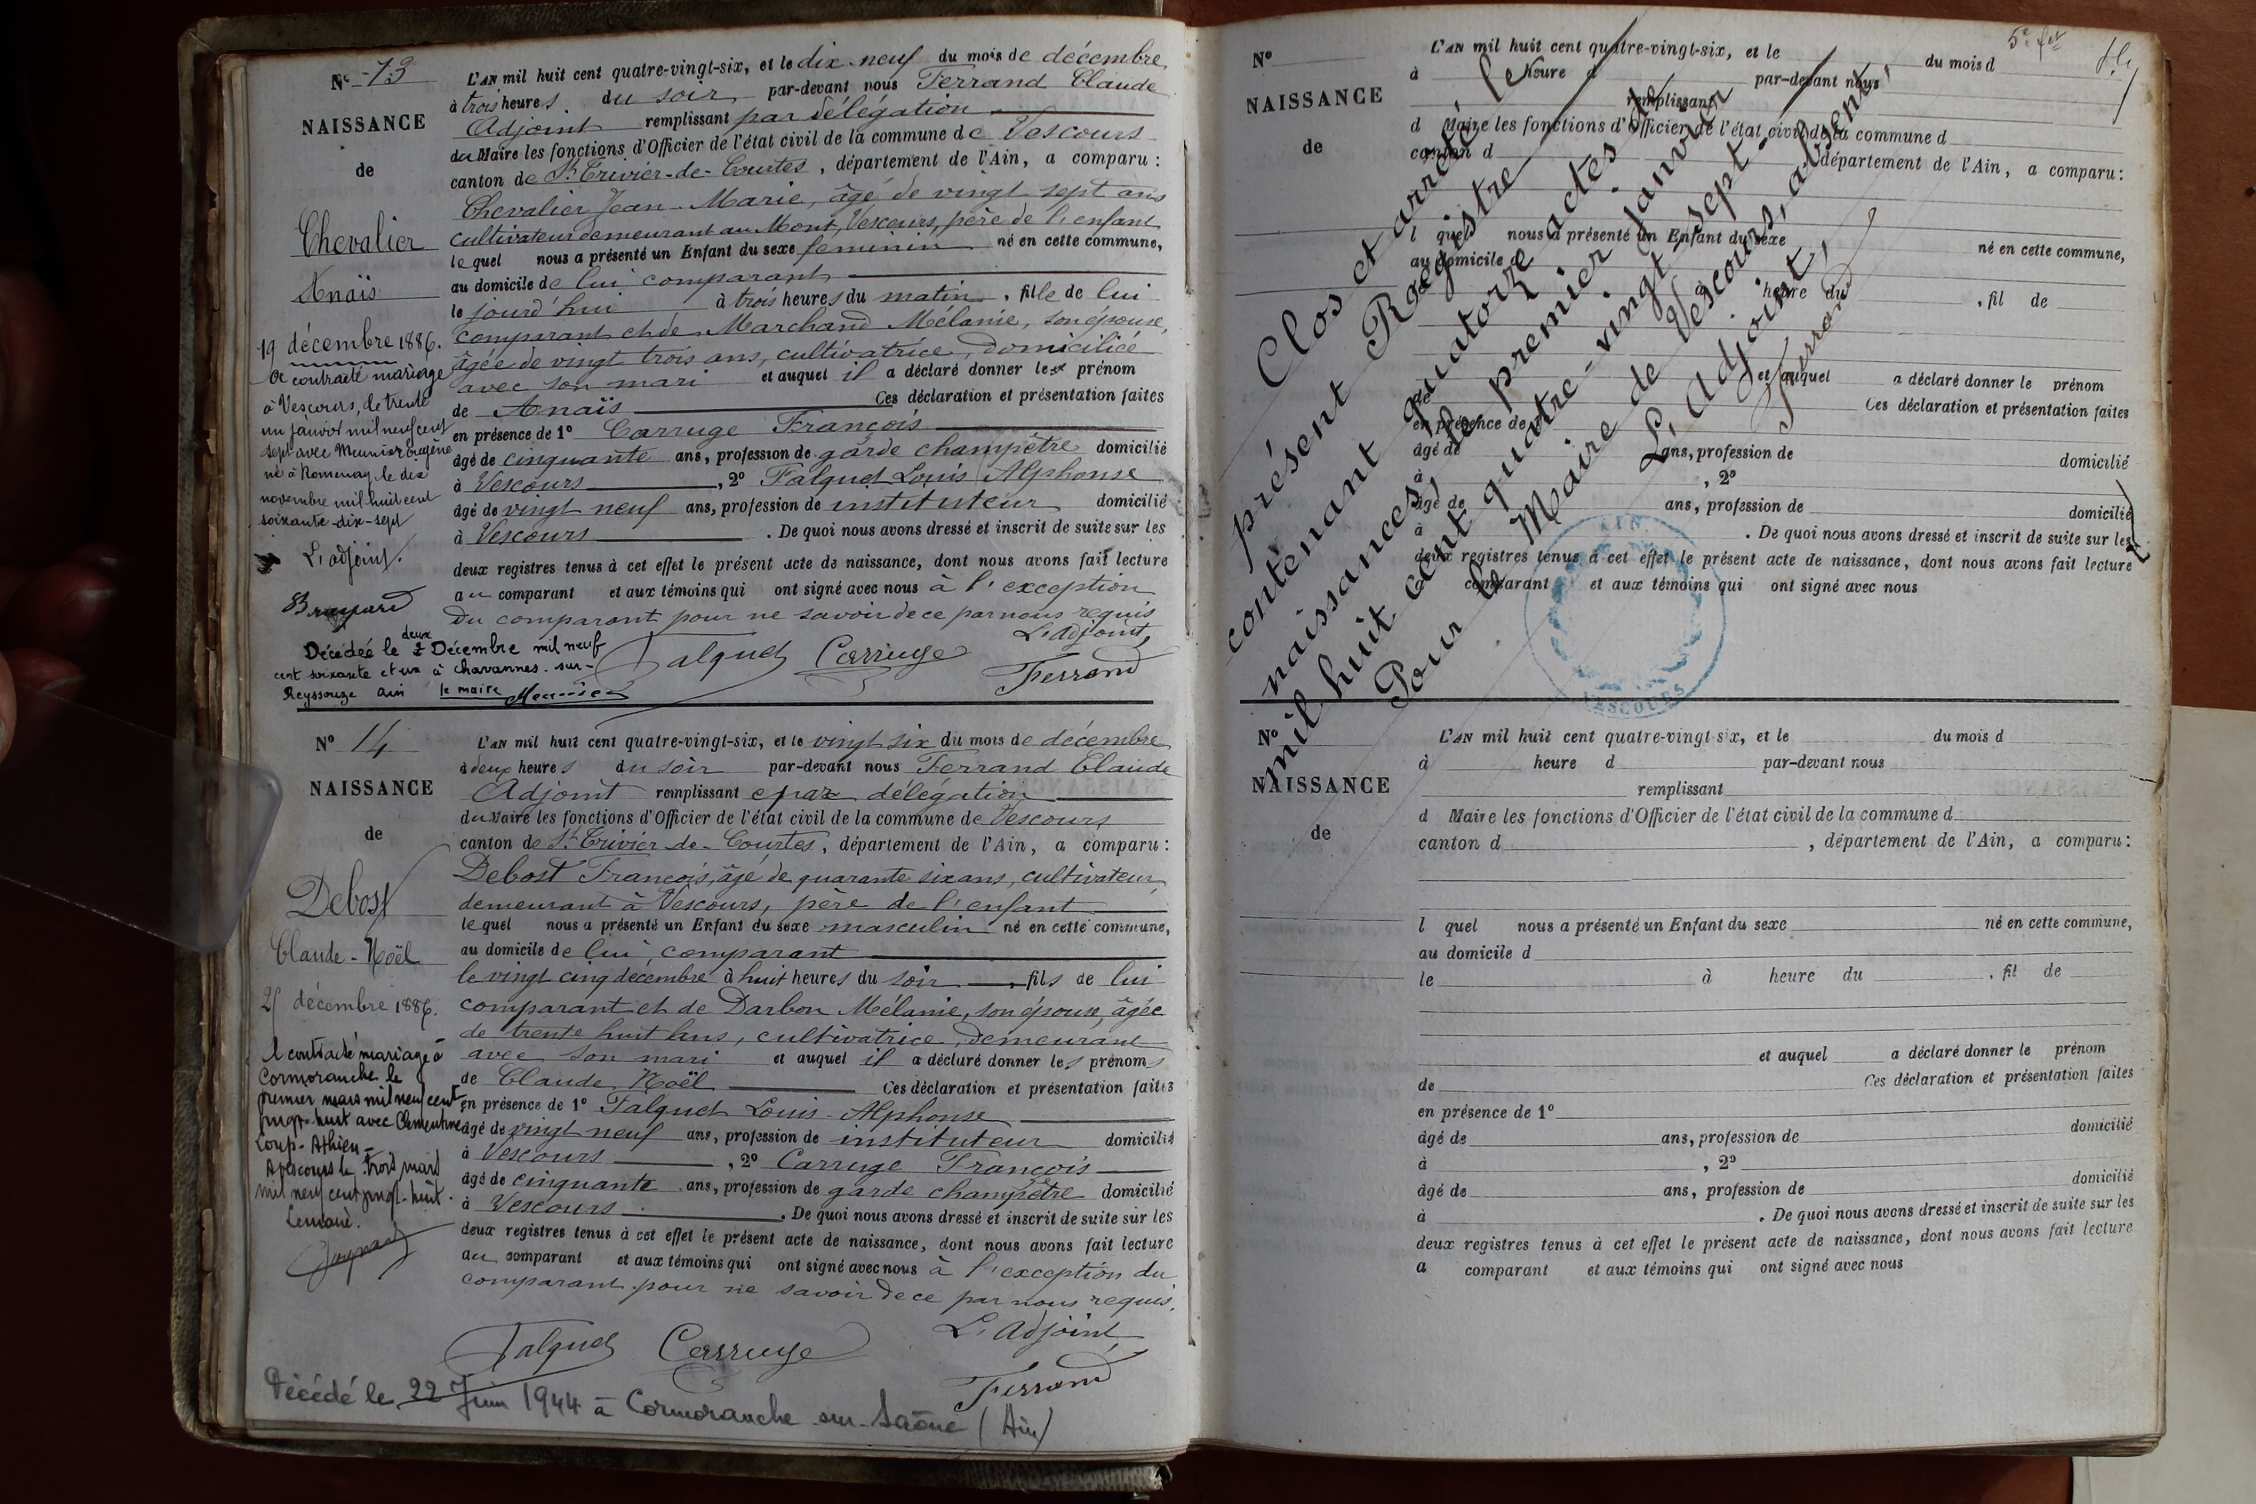 Nº 13
NAISSANCE
de
Chevalier
Anaïs
19 décembre 1886.
A contracté mariage
à Vescours, le trente
un janvier mil neuf cent
sept avec Meunier Eugène
né à Romenay le dix
novembre mil huit cent
soixante-dix-sept
L'adjoint.
Décédée le deux Décembre mil neuf
cent soixante et un à Chavannes-sur-
Reyssouze Ain le maire
L'AN mil huit cent quatre-vingt-six, et le dix-neuf du mois de décembre
à trois heures du soir par-devant nous Ferrand Claude
Adjoint remplissant par délégation
du Maire les fonctions d'Officier de l'état civil de la commune de Vescours
canton de St Trivier-de-Courtes, département de l'Ain, a comparu:
Chevalier Jean-Marie, âgé de vingt sept ans
cultivateur demeurant au Mont, Vescours, père de l'enfant
lequel nous a présenté un Enfant du sexe feminin né en cette commune,
au domicile de lui comparant
le jourd'hui à trois heures du matin, fille de lui
comparant et de Marchand Mélanie, son épouse,
âgée de vingt trois ans, cultivatrice, domiciliée
avec son mari et auquel il a déclaré donner le prénom
de Anaïs Ces déclaration et présentation faites
en présence de 1º Carruge François
âgé de cinquante ans, profession de garde champêtre domicilié
à Vescours, 2º Falquet Louis Alphonse
âgé de vingt neuf ans, profession de instituteur domicilié
à Vescours. De quoi nous avons dressé et inscrit de suite sur les
deux registres tenus à cet effet le présent acte de naissance, dont nous avons fait lecture
au comparant et aux témoins qui ont signé avec nous à l'exception
du comparant pour ne savoir de ce par nous requis
L'Adjoint,
Falquet Carruge Ferrand
Nº 14
NAISSANCE
de
Debost
Claude-Noël
25 décembre 1886.
A contracté mariage à
Cormoranche le
premier mars mil neuf cent
vingt-huit avec Clémentine
Loup-Athieu-
A Vescours le trois mars
mil neuf cent vingt-huit.
Le maire.
L'AN mil huit cent quatre-vingt-six, et le vingt six du mois de décembre
à deux heures du soir par-devant nous Ferrand Claude
Adjoint remplissant par délégation
du Maire les fonctions d'Officier de l'état civil de la commune de Vescours
canton de St Trivier-de-Courtes, département de l'Ain, a comparu:
Debost François, âgé de quarante six ans, cultivateur
demeurant à Vescours, père de l'enfant
lequel nous a présenté un Enfant du sexe masculin né en cette commune,
au domicile de lui, comparant
le vingt cinq décembre à huit heures du soir, fils de lui
comparant et de Darbon Mélanie, son épouse, âgée
de trente huit ans, cultivatrice, demeurant
avec son mari et auquel il a déclaré donner les prénoms
de Claude Noël Ces déclaration et présentation faites
en présence de 1º Falquet Louis-Alphonse
âgé de vingt neuf ans, profession de instituteur domicilié
à Vescours, 2º Carruge François
âgé de cinquante ans, profession de garde champêtre domicilié
à Vescours. De quoi nous avons dressé et inscrit de suite sur les
deux registres tenus à cet effet le présent acte de naissance, dont nous avons fait lecture
au comparant et aux témoins qui ont signé avec nous à l'exception du
comparant pour ne savoir de ce par nous requis.
L'Adjoint
Falquet Carruge Ferrand
Décédé le 22 Juin 1944 à Cormoranche-sur-Saône (Ain)
Nº
NAISSANCE
de
L'AN mil huit cent quatre-vingt-six, et le du mois d
à heure d par-devant nous
remplissant
d Maire les fonctions d'Officier de l'état civil de la commune d
canton d , département de l'Ain, a comparu:
l quel nous a présenté un Enfant du sexe né en cette commune,
au domicile d
le à heure du , fil de
et auquel a déclaré donner le prénom
de Ces déclaration et présentation faites
en présence de 1º
âgé de ans, profession de domicilié
à , 2º
âgé de ans, profession de domicilié
à . De quoi nous avons dressé et inscrit de suite sur les
deux registres tenus à cet effet le présent acte de naissance, dont nous avons fait lecture
a comparant et aux témoins qui ont signé avec nous
Clos et arrêté le
présent Registre
contenant quatorze actes de
naissances, le premier janvier
mil huit cent quatre-vingt-sept.
Pour le Maire de Vescours, absent,
L'Adjoint,
Ferrand
AIN
VESCOURS
Nº
NAISSANCE
de
L'AN mil huit cent quatre-vingt-six, et le du mois d
à heure d par-devant nous
remplissant
d Maire les fonctions d'Officier de l'état civil de la commune d
canton d , département de l'Ain, a comparu:
l quel nous a présenté un Enfant du sexe né en cette commune,
au domicile d
le à heure du , fil de
et auquel a déclaré donner le prénom
de Ces déclaration et présentation faites
en présence de 1º
âgé de ans, profession de domicilié
à , 2º
âgé de ans, profession de domicilié
à . De quoi nous avons dressé et inscrit de suite sur les
deux registres tenus à cet effet le présent acte de naissance, dont nous avons fait lecture
a comparant et aux témoins qui ont signé avec nous